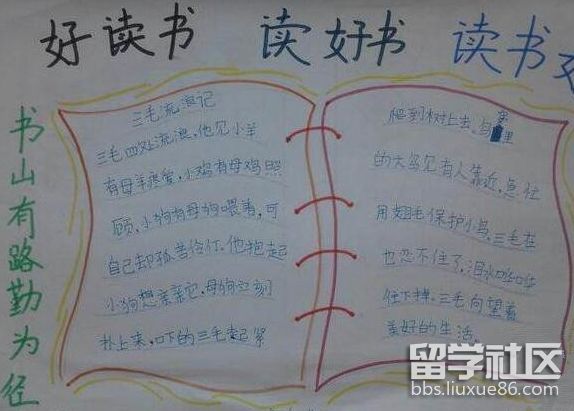 好读书 读好书 读书
书山有路勤为径
三毛流浪记
三毛四处流浪,他见小羊
有母羊疼爱,小鸡有母鸡照
顾,小狗有母狗喂着,可
自己却孤苦伶仃.他抱起
小狗想亲亲它,母狗立刻
扑上来,吓的三毛赶紧
爬到树上去,鸟巢里
的大鸟见有人靠近,急忙
用翅毛保护小鸟,三毛在
也忍不住了,泪水哗哗
往下掉.三毛向望着
美好的生活
留学社区
bbs.liuxue86.com